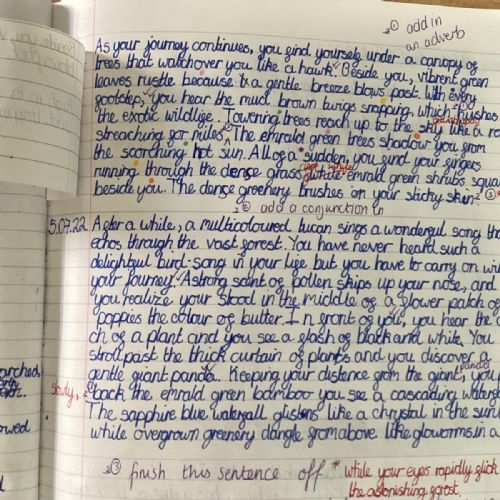 ① add in
an adverb
As your journey continues, you find yourself under a canopy of
trees that watch over you like a hawk. Beside you, vibrent green
leaves rustle because a gentle breeze blows past. With every
footstep, you hear the mud brown twigs snapping, which
the exotic wildlife. Towering trees reach up to the sky like a
streaching for miles. The emrald green trees shadow you from
the scorching hot sun. All of a sudden, you find your fingers
running through the dense grass while emrald green shrubs
beside you. The dense greenery brushes on your stichy skin.
② add a conjunction in
5.07.22 After a while, a multicoloured tucan sings a wonderful song
echos through the vast forest. You have never heard such a
delightful bird-song in your life but you have to carry on
your journey. A strong scent of pollen skips up your nose, and
you realize your stood in the middle of a flower patch of
poppies the colour of butter. In front of you, you hear the
ch of a plant and you see a flash of black and white. You
stroll past the thick curtain of plants and you discover a
gentle giant panda. Keeping your distence from the giant panda, you
slowly, back the emrald green bamboo you see a cascading
The sapphire blue waterfall glistens like a chrystal in the
while overgrown greenery dangle from above like gloworms in a
③ finish this sentence off * while your eyes rapidly flick
the astonishing forest.